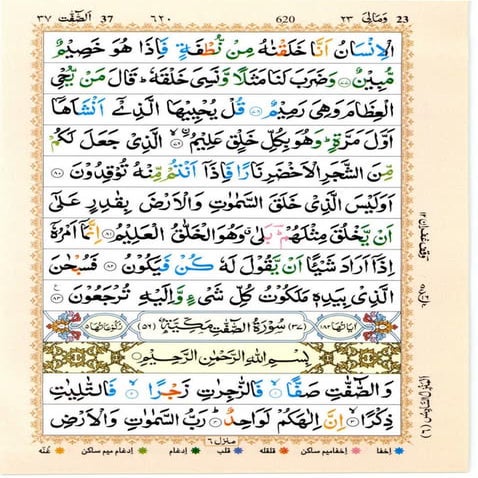 23 وَمَالِیَ ٢٣ 620 ٦٢٠ 37 اَلصّٰٓفّٰت ٣٧
الْاِنْسَانُ اَنَّا خَلَقْنٰهُ مِنْ نُّطْفَةٍ فَاِذَا هُوَ خَصِیْمٌ
مُّبِیْنٌ ٧٧ وَضَرَبَ لَنَا مَثَلًا وَّنَسِیَ خَلْقَهٗ ؕ قَالَ مَنْ یُّحْیِ
الْعِظَامَ وَهِیَ رَمِیْمٌ ٧٨ قُلْ یُحْیِیْهَا الَّذِیْۤ اَنْشَاَهَاۤ
اَوَّلَ مَرَّةٍ ؕ وَهُوَ بِكُلِّ خَلْقٍ عَلِیْمُ ۙ ٧٩ الَّذِیْ جَعَلَ لَكُمْ
مِّنَ الشَّجَرِ الْاَخْضَرِ نَارًا فَاِذَاۤ اَنْتُمْ مِّنْهُ تُوْقِدُوْنَ ٨٠
اَوَلَیْسَ الَّذِیْ خَلَقَ السَّمٰوٰتِ وَالْاَرْضَ بِقٰدِرٍ عَلٰۤی
اَنْ یَّخْلُقَ مِثْلَهُمْ ؕ بَلٰی ۗ وَهُوَ الْخَلّٰقُ الْعَلِیْمُ ٨١ اِنَّمَاۤ اَمْرُهٗۤ
اِذَاۤ اَرَادَ شَیْـًٔا اَنْ یَّقُوْلَ لَهٗ كُنْ فَیَكُوْنُ ٨٢ فَسُبْحٰنَ
الَّذِیْ بِیَدِهٖ مَلَكُوْتُ كُلِّ شَیْءٍ وَّاِلَیْهِ تُرْجَعُوْنَ ٨٣
اٰیَاتُهَا ١٨٢ (٣٧) سُوْرَةُ الصّٰٓفّٰتِ مَكِّیَّةٌ (٥٦) رُكُوْعَاتُهَا ٥
بِسْمِ اللّٰهِ الرَّحْمٰنِ الرَّحِیْمِ
وَالصّٰٓفّٰتِ صَفًّا ۙ ١ فَالزّٰجِرٰتِ زَجْرًا ۙ ٢ فَالتّٰلِیٰتِ
ذِكْرًا ۙ ٣ اِنَّ اِلٰهَكُمْ لَوَاحِدٌ ؕ ٤ رَبُّ السَّمٰوٰتِ وَالْاَرْضِ
منزل ٦
اخفا اخفامیم ساکن قلقله قلب ادغام ادغام میم ساکن غنّه